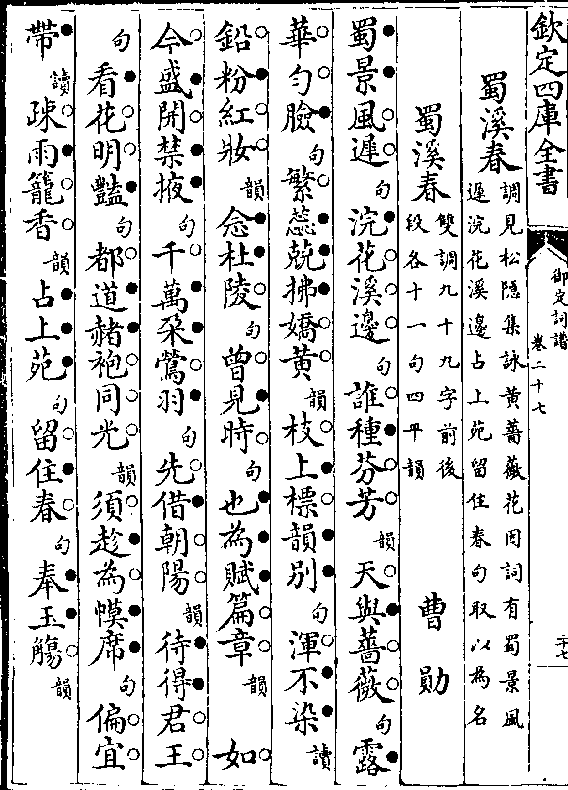 欽定四庫全書
御定詞譜
卷二十七
二十七
蜀溪春
調見松隱集詠黄薔薇花因詞有蜀景風
遲浣花溪邊占上苑留住春句取以為名
蜀溪春
雙調九十九字前後
段各十一句四平韻
曹勛
蜀景風遲句浣花溪邊句誰種芬芳韻天與薔薇句露
華勻臉句繁蕊競拂嬌黄韻枝上標韻別句渾不染讀
鉛粉紅妝韻念杜陵句曾見時句也為賦篇章韻如
今盛開禁掖句千萬朶鶯羽句先借朝陽韻待得君王
句看花明豔句都道赭袍同光韻須趁為幙席句偏宜
帶讀疎雨籠香韻占上苑句留住春句奉玉觴韻